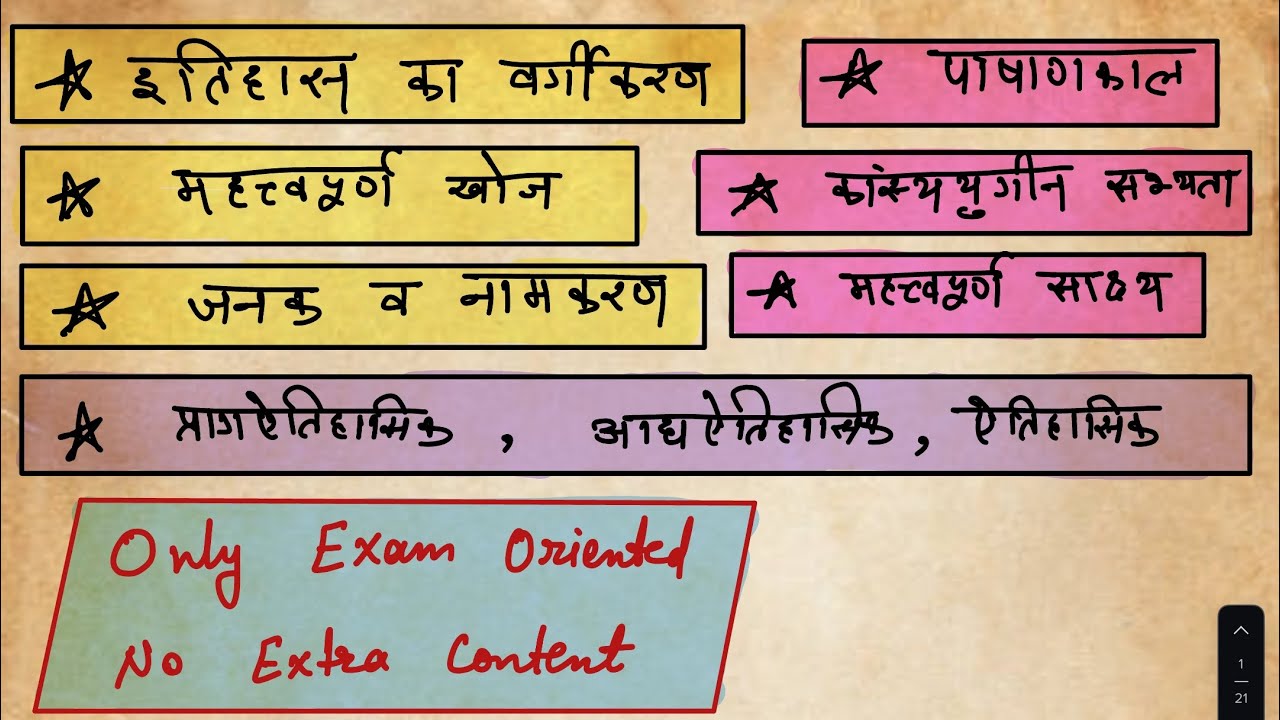 ☆ इतिहास का वर्गीकरण
☆ पाषाणकाल
☆ महत्त्वपूर्ण खोज
☆ कांस्ययुगीन सभ्यता
☆ जनक व नामकरण
☆ महत्त्वपूर्ण साक्ष्य
☆ प्रागऐतिहासिक , आद्यऐतिहासिक , ऐतिहासिक
Only Exam Oriented
No Extra Content
1
21